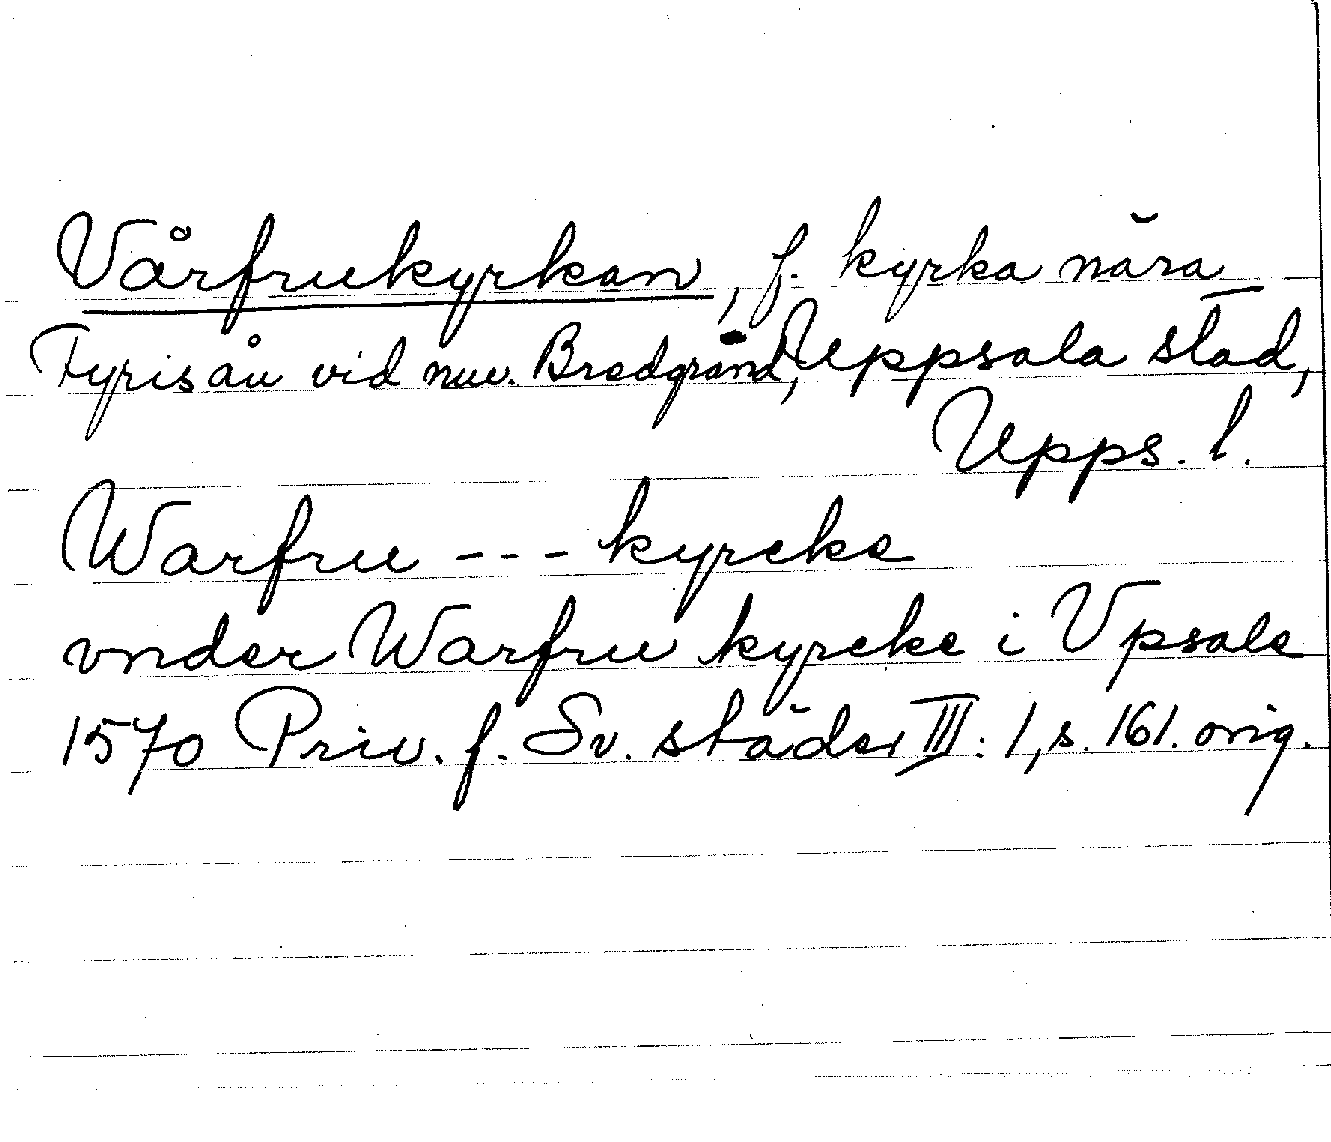 Vårfrukyrkan, f. kyrka nära
Fyrisån vid nuv. Bredgränd, Uppsala stad,
Upps. l.
Warfru --- kyrcke
vnder Warfru kyrcke i Vpsale
1570 Priv. f. Sv. städer III: 1, s. 161. orig.